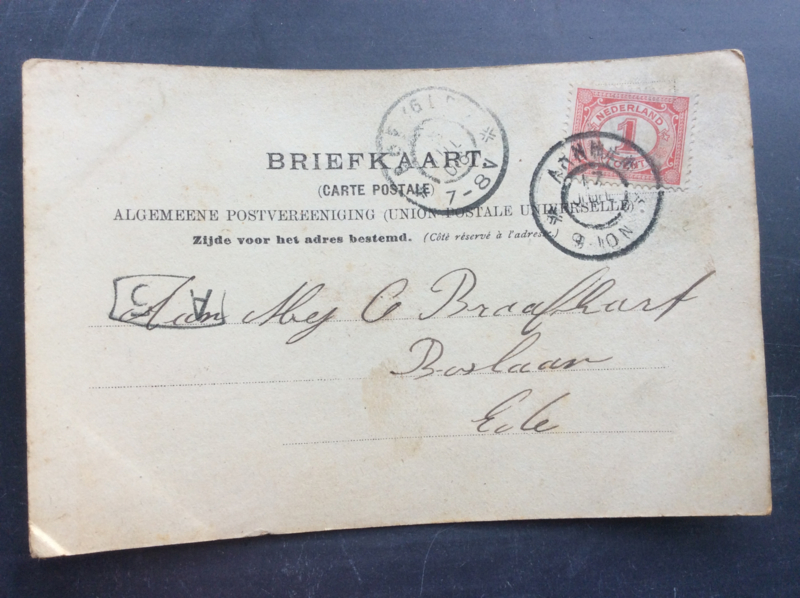 NEDERLAND
1
BRIEFKAART.
(CARTE POSTALE)
7-8 V
ARNHEM
ALGEMEENE POSTVEREENIGING (UNION POSTALE UNIVERSELLE)
Zijde voor het adres bestemd. (Côté réservé à l'adresse.)
A 3
Aan Mej C Braafhart
Boslaan
Ede